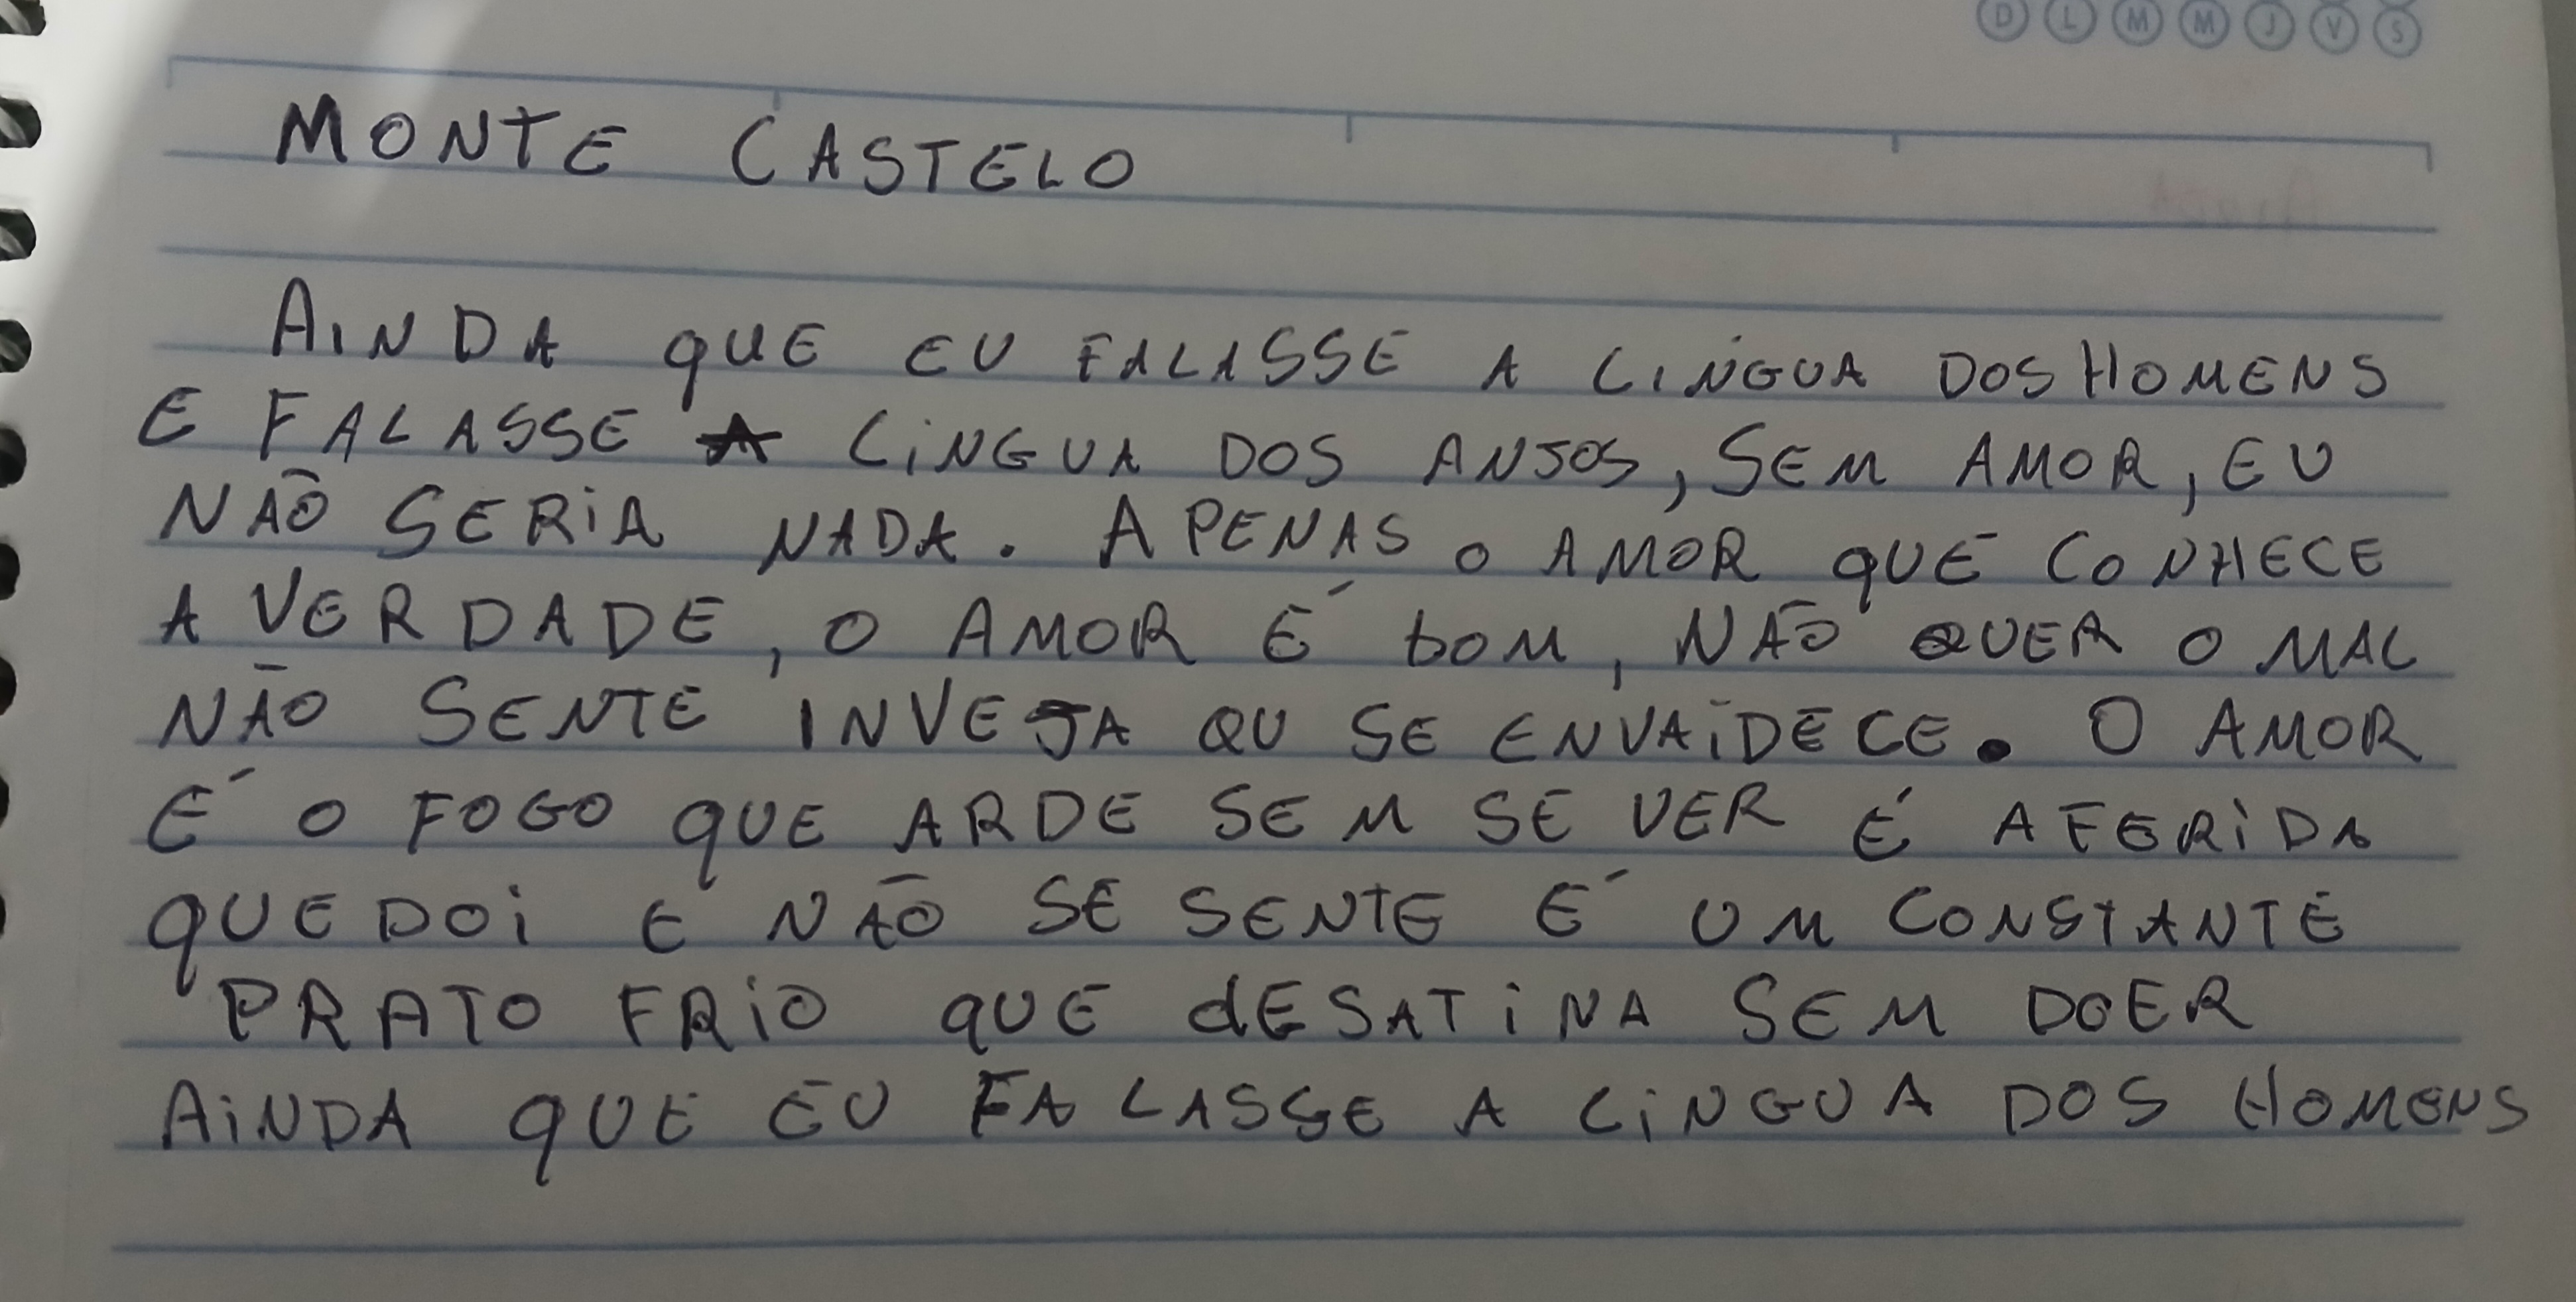 D L M M J V S
MONTE CASTELO
AINDA QUE EU FALASSE A LINGUA DOS HOMENS
E FALASSE A LINGUA DOS ANJOS, SEM AMOR, EU
NÃO SERIA NADA. APENAS O AMOR QUE CONHECE
A VERDADE, O AMOR É bOM, NÃO QUER O MAL
NÃO SENTE INVEJA OU SE ENVAIDECE. O AMOR
É O FOGO QUE ARDE SEM SE VER É A FERIDA
QUE DOI E NÃO SE SENTE É UM CONSTANTE
PRATO FRIO QUE dESATINA SEM DOER
AINDA QUE EU FALASSE A LINGUA DOS HOMENS